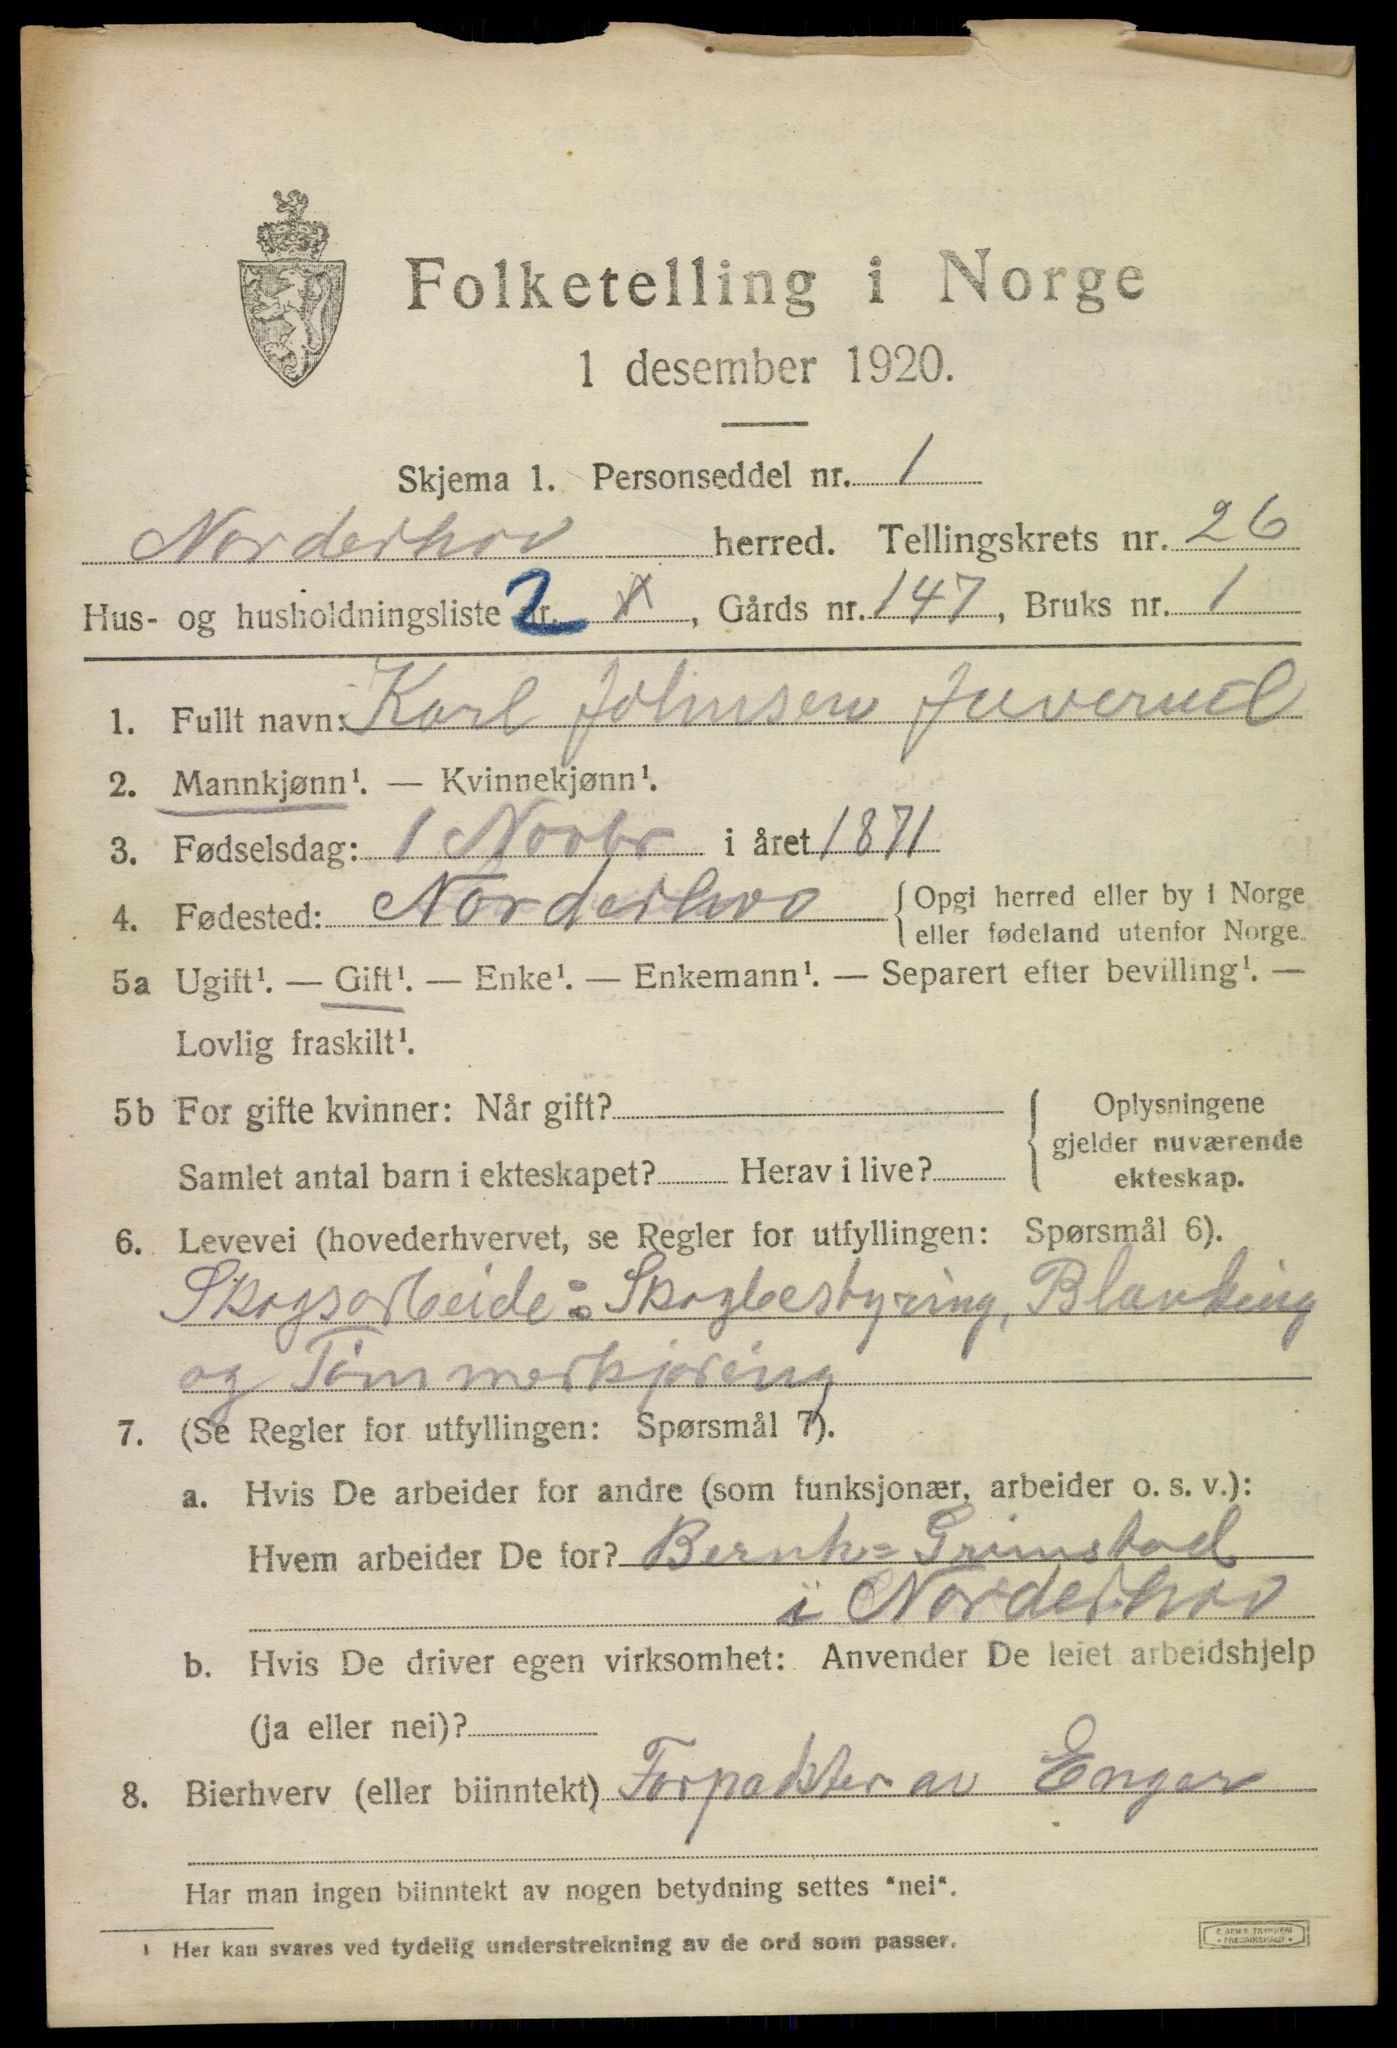 Folketelling i Norge
1 desember 1920.
Skjema 1. Personseddel nr. 1
Norderhov herred. Tellingskrets nr. 26
Hus- og husholdningsliste nr. 2, Gårds nr. 147, Bruks nr. 1
1. Fullt navn: Karl Johnsen
2. Mannkjønn¹. — Kvinnekjønn¹.
3. Fødselsdag: 1 Novbr i året 1871
4. Fødested: Norderhov { Opgi herred eller by i Norge
eller fødeland utenfor Norge.
5a Ugift¹. — Gift¹. — Enke¹. — Enkemann¹. — Separert efter bevilling¹. —
Lovlig fraskilt¹.
5b For gifte kvinner: Når gift? { Oplysningene
gjelder nuværende
Samlet antal barn i ekteskapet? Herav i live? ekteskap.
6. Levevei (hovederhvervet, se Regler for utfyllingen: Spørsmål 6).
Skogsarbeide: Skogbestyring, Blanking
og Tømmerkjøring
7. (Se Regler for utfyllingen: Spørsmål 7).
a. Hvis De arbeider for andre (som funksjonær, arbeider o. s. v.):
Hvem arbeider De for? Bernh= Grimstad
i Norderhov
b. Hvis De driver egen virksomhet: Anvender De leiet arbeidshjelp
(ja eller nei)?
8. Bierhverv (eller biinntekt) Forpakter av Enger
Har man ingen biinntekt av nogen betydning settes "nei".
¹ Her kan svares ved tydelig understrekning av de ord som passer.